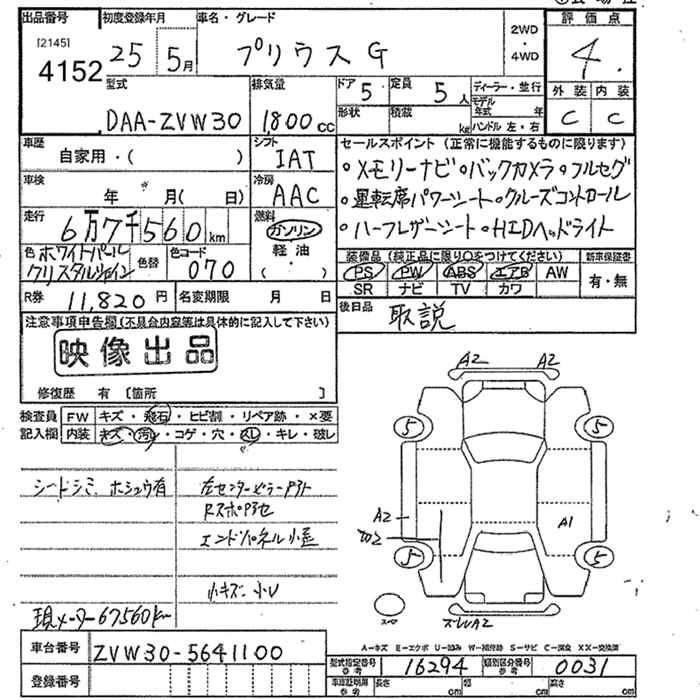 出品番号 初度登録年月 車名・グレード 評価点
[2145] 4152 25 5月 プリウスG 2WD・4WD 4.
型式 排気量 ドア 5 定員 5人 ディーラー・並行 外装 内装
DAA-ZVW30 1,800cc 形状 積載 kg モデル年式 年 ハンドル 左・右 C C
車歴 自家用・( ) シフト IAT セールスポイント (正常に機能するものに限ります)
車検 年 月( 日) 冷房 AAC
・メモリーナビ・バックカメラ・フルセグ
・運転席パワーシート・クルーズコントロール
・ハーフレザーシート・HIDヘッドライト
走行 6万7千560km 燃料 ガソリン 軽油 ( )
色 ホワイトパール クリスタルシャイン 色替 色コード 070
装備品 (純正品に限り○をつけてください) 新車保証書
PS PW ABS エアB AW 有・無
SR ナビ TV カワ
R券 11,820円 名変期限 月 日
後日品 取説
注意事項申告欄(不具合内容等は具体的に記入して下さい)
映像出品
修復歴 有 [箇所 ]
検査員 FW キズ・飛石・ヒビ割・リペア跡・×要
記入欄 内装 キズ・汚レ・コゲ・穴・スレ・キレ・破レ
シートシミ ホシュウ有
エンドパネル小歪
小キズ 小U
現メーター67560k
A2 A2
5 5
A2 A1
5 5
A2
A=キズ E=エクボ U=凹み W=補修跡 S=サビ C=腐食 XX=交換済
車台番号 ZVW30-5641100
登録番号
型式指定番号 参考 16294 類別区分番号 参考 0031
車庫証明 参考 長さ cm 幅 cm 高さ cm